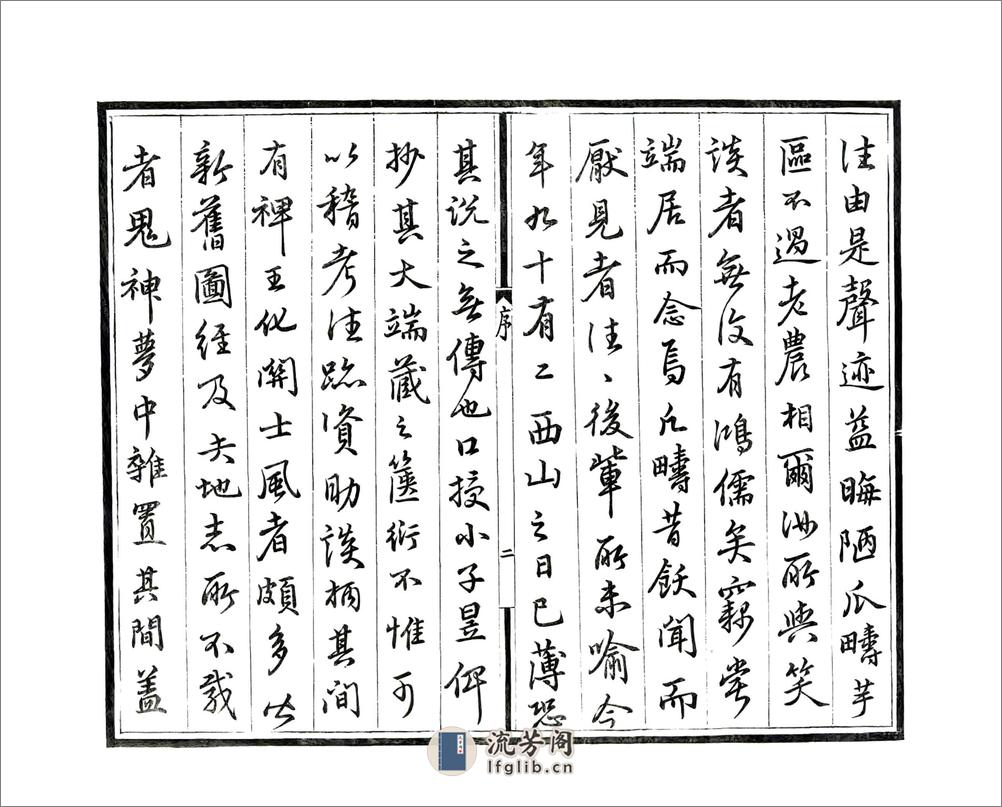 往由是聲迹益晦陋瓜疇芋
區不過老農相爾汝所與笑
談者無復有鴻儒矣竊嘗
端居而念焉凡疇昔飫聞而
厭見者往〻後輩所未喻今
年九十有二西山之日已薄恐
序
二
其說之無傳也口授小子昱俾
抄其大端藏之篋衍不惟可
以稽考往跡資助談柄其間
有裨王化關士風者頗多皆
新舊圖經及夫地志所不載
者鬼神夢中雜置其間蓋
流芳阁
lfglib.cn